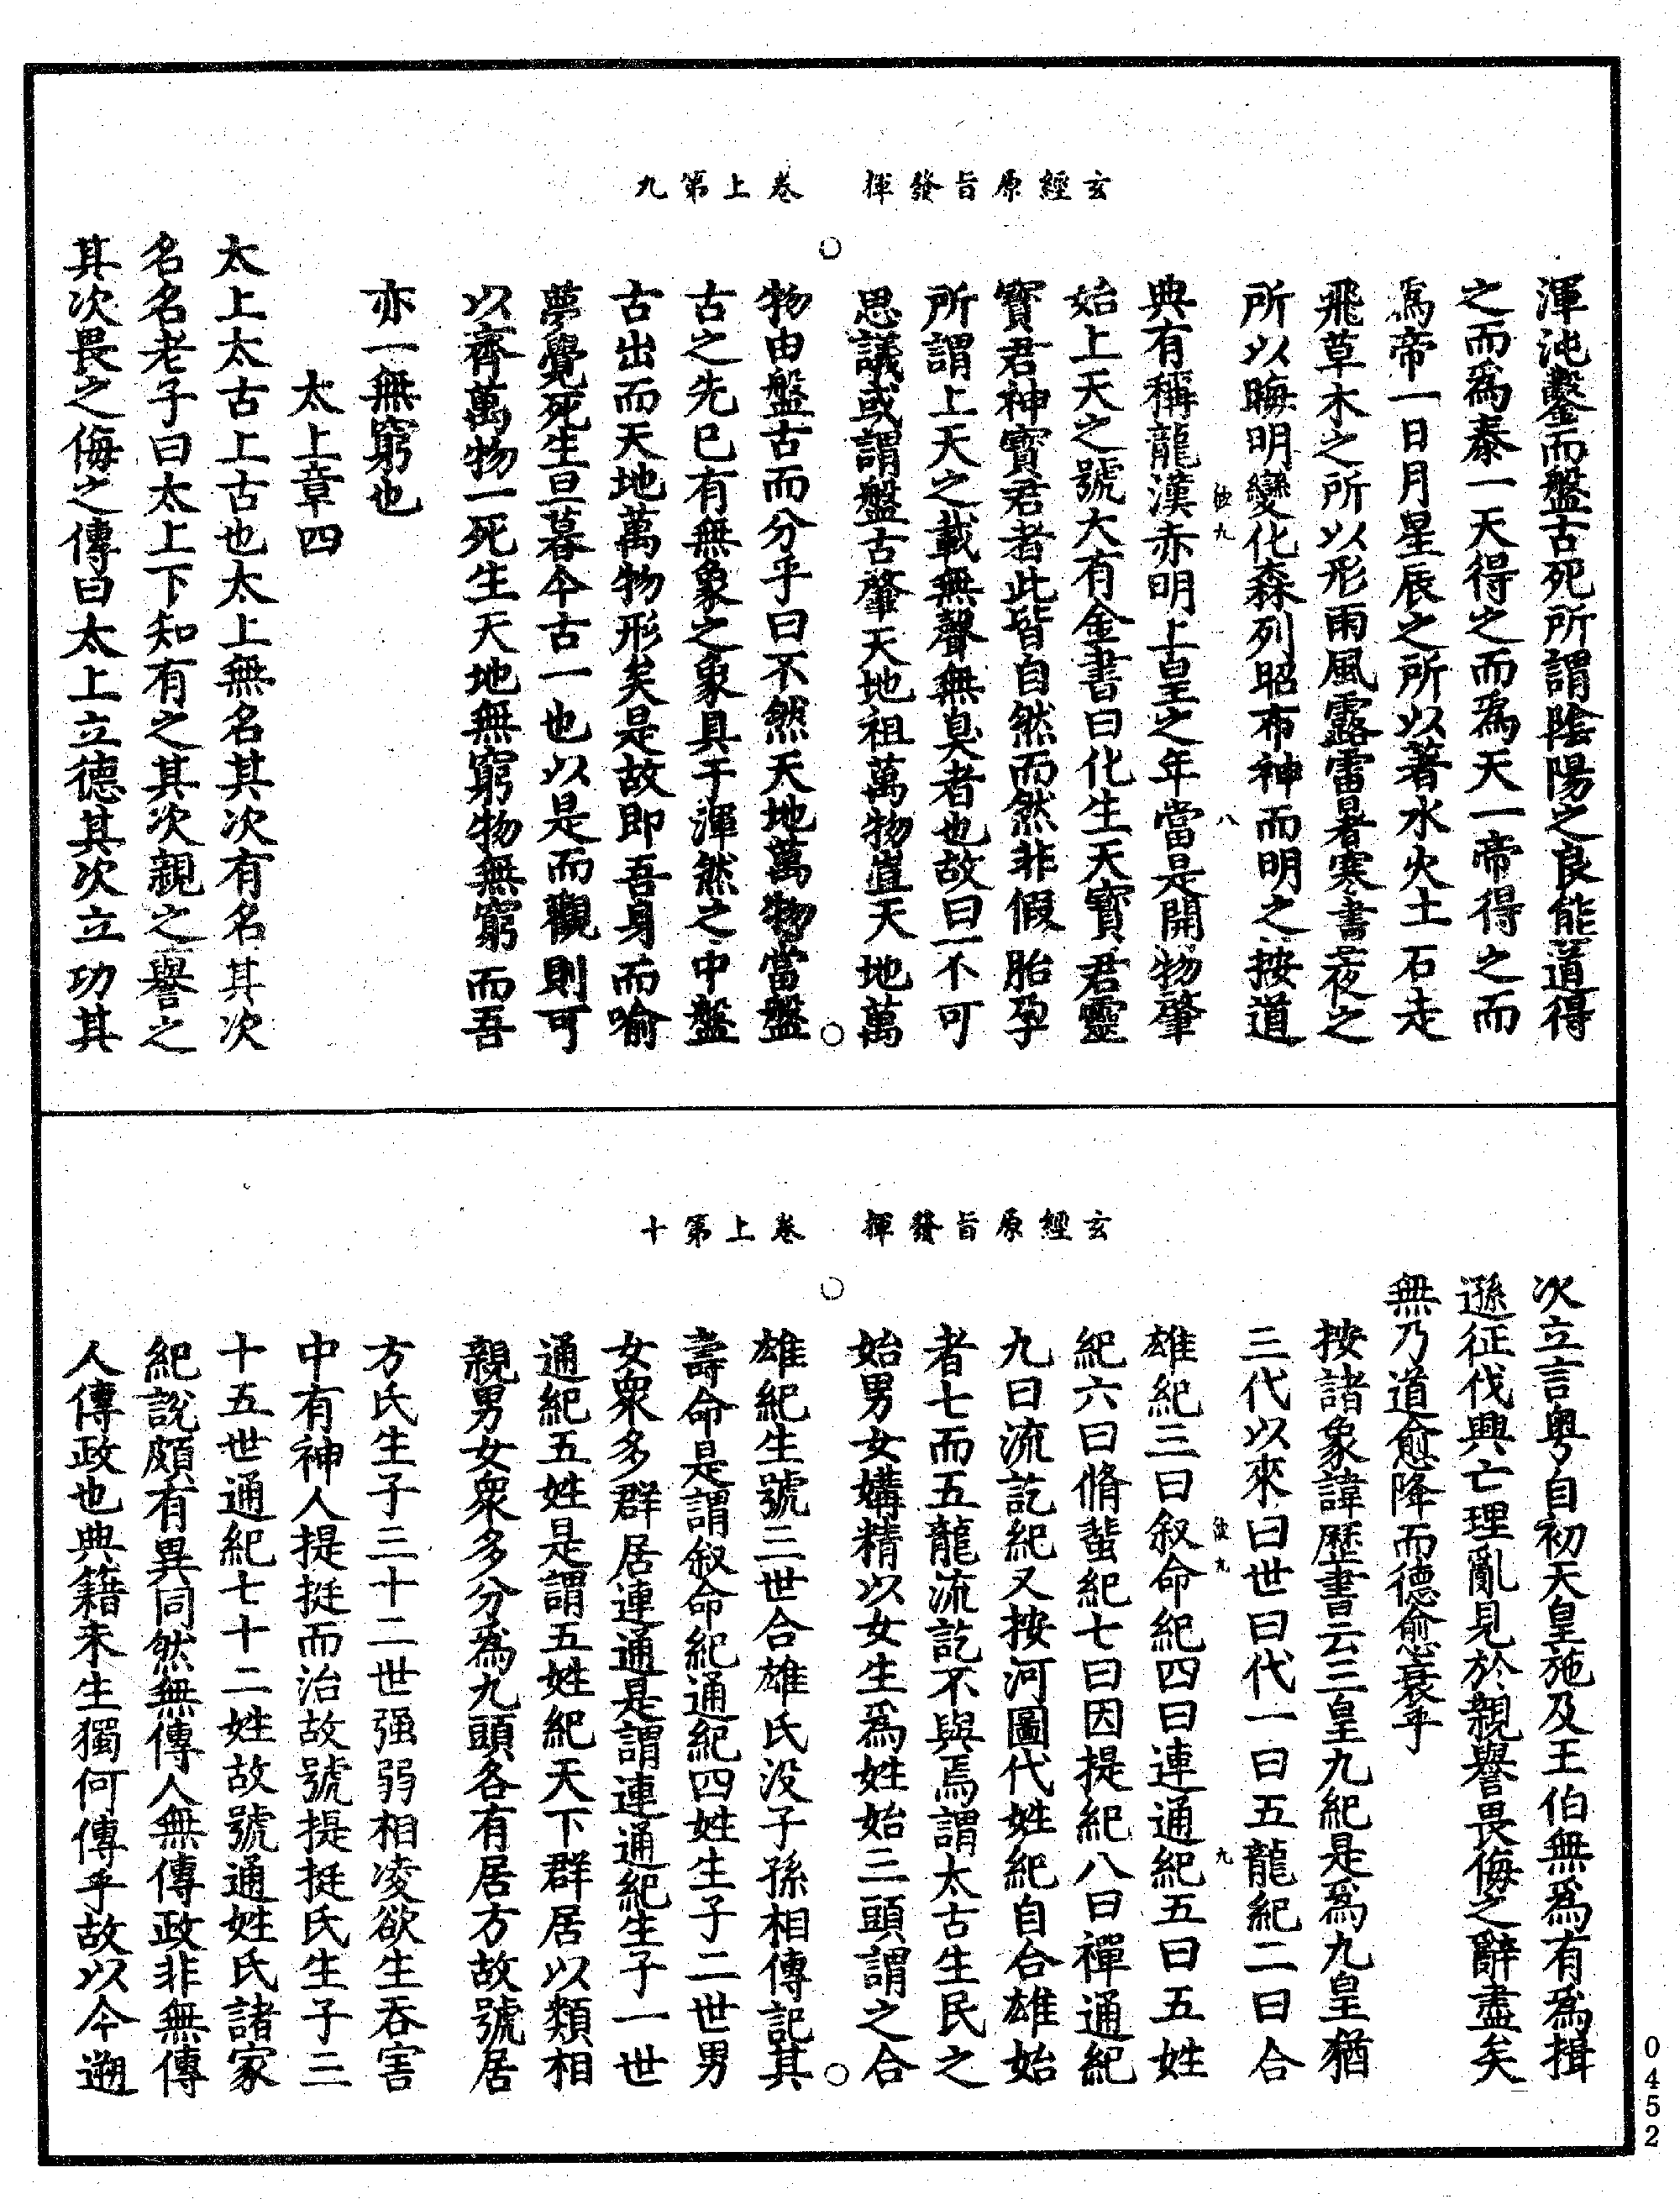 玄經原旨發揮　卷上第九
渾沌鑿而盤古死所謂陰陽之良能道得
之而爲泰一天得之而爲天一帝得之而
爲帝一日月星辰之所以著水火土石走
飛草木之所以形雨風露雷暑寒晝夜之
所以晦明變化森列昭布神而明之按道
九
八
典有稱龍漢赤明上皇之年當是開物肇
始上天之號大有金書曰化生天寶君靈
寶君神寶君者此皆自然而然非假胎孕
所謂上天之載無聲無臭者也故曰不可
思議或謂盤古肇天地祖萬物豈天地萬
物由盤古而分乎曰不然天地萬物當盤
古之先已有無象之象具于渾然之中盤
古出而天地萬物形矣是故即吾身而喻
夢覺死生旦暮今古一也以是而觀則可
以齊萬物一死生天地無窮物無窮而吾
亦一無窮也
太上章四
太上太古上古也太上無名其次有名其次
名名老子曰太上下知有之其次親之譽之
其次畏之侮之傳曰太上立德其次立功其
玄經原旨發揮　卷上第十
次立言粵自初天皇施及王伯無爲有爲揖
遜征伐興亡理亂見於親譽畏侮之辭盡矣
無乃道愈降而德愈衰乎
按諸象諱歷書云三皇九紀是爲九皇猶
三代以來曰世曰代一曰五龍紀二曰合
九
九
雄紀三曰叙命紀四曰連通紀五曰五姓
紀六曰脩蜚紀七曰因提紀八曰禪通紀
九曰流訖紀又按河圖代姓紀自合雄始
者七而五龍流訖不與焉謂太古生民之
始男女媾精以女生爲姓始三頭謂之合
雄紀生號三世合雄氏没子孫相傳記其
壽命是謂叙命紀通紀四姓生子二世男
女衆多群居連通是謂連通紀生子一世
通紀五姓是謂五姓紀天下群居以類相
親男女衆多分爲九頭各有居方故號居
方氏生子三十二世强弱相凌欲生吞害
中有神人提挺而治故號提挺氏生子三
十五世通紀七十二姓故號通姓氏諸家
紀說頗有異同然無傳人無傳政非無傳
人傳政也典籍未生獨何傳乎故以今遡
0452